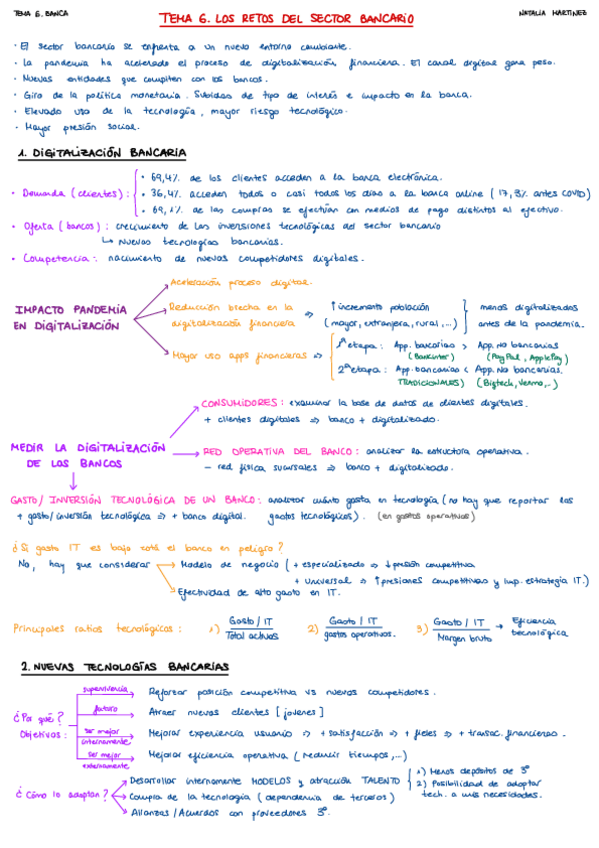 TEMA 6. BANCA
TEMA 6. LOS RETOS DEL SECTOR BANCARIO
NATALIA MARTINEZ
· El sector bancario se enfrenta a un nuevo entorno cambiante.
· La pandemia ha acelerado el proceso de digitalización financiera. El canal digital gana peso.
· Nuevas entidades que compiten con los bancos.
· Giro de la política monetaria. Subidas de tipo de interés e impacto en la banca.
· Elevado uso de la tecnología, mayor riesgo tecnológico.
· Mayor presión social.
1. DIGITALIZACIÓN BANCARIA
· Demanda (clientes):
· 69,4% de los clientes acceden a la banca electrónica.
· 36,4% acceden todos o casi todos los días a la banca online (17,3% antes COVID)
· 69,1% de las compras se efectúan con medios de pago distintos al efectivo.
· Oferta (bancos): crecimiento de las inversiones tecnológicas del sector bancario
↳ Nuevas tecnologías bancarias.
· Competencia: nacimiento de nuevos competidores digitales.
IMPACTO PANDEMIA EN DIGITALIZACIÓN
Aceleración proceso digital.
Reducción brecha en la digitalización financiera ⇒ ↑ incremento población (mayor, extranjera, rural,...) menos digitalizados antes de la pandemia.
Mayor uso apps financieras ⇒
1ª etapa: App. bancarias > App. no bancarias
(Bankinter) (PayPal, ApplePay)
2ª etapa: App. bancarias < App. no bancarias.
TRADICIONALES) (Bigtech, Venmo,..)
MEDIR LA DIGITALIZACIÓN DE LOS BANCOS
CONSUMIDORES: examinar la base de datos de clientes digitales.
+ clientes digitales ⇒ banco + digitalizado.
RED OPERATIVA DEL BANCO: analizar la estructura operativa.
- red física sucursales ⇒ banco + digitalizado.
GASTO/ INVERSIÓN TECNOLÓGICA DE UN BANCO: analizar cuánto gasta en tecnología (no hay que reportar los
+ gasto/inversión tecnológica ⇒ + banco digital. gastos tecnológicos). (en gastos operativos)
¿Si gasto IT es bajo está el banco en peligro?
No, hay que considerar
Modelo de negocio (+ especializado ⇒ ↓ presión competitiva
+ universal ⇒ ↑ presiones competitivas y imp. estrategia IT.)
Efectividad de alto gasto en IT.
Principales ratios tecnológicas: 1) Gasto/IT Total activos 2) Gasto/IT gastos operativos. 3) Gasto/IT Margen bruto → Eficiencia tecnológica
2. NUEVAS TECNOLOGÍAS BANCARIAS
¿Por qué? Objetivos:
supervivencia Reforzar posición competitiva vs nuevos competidores.
futuro Atraer nuevos clientes [jovenes]
ser mejor internamente Mejorar experiencia usuario ⇒ + satisfacción ⇒ + fieles ⇒ + transac. financieras.
ser mejor externamente Mejorar eficiencia operativa (reducir tiempos,...)
¿Cómo lo adoptan?
Desarrollar internamente MODELOS y atracción TALENTO
1) Menos depósitos de 3º
2) Posibilidad de adoptar tech. a mis necesidades.
Compra de la tecnología (dependencia de terceros)
Alianzas/Acuerdos con proveedores 3º.